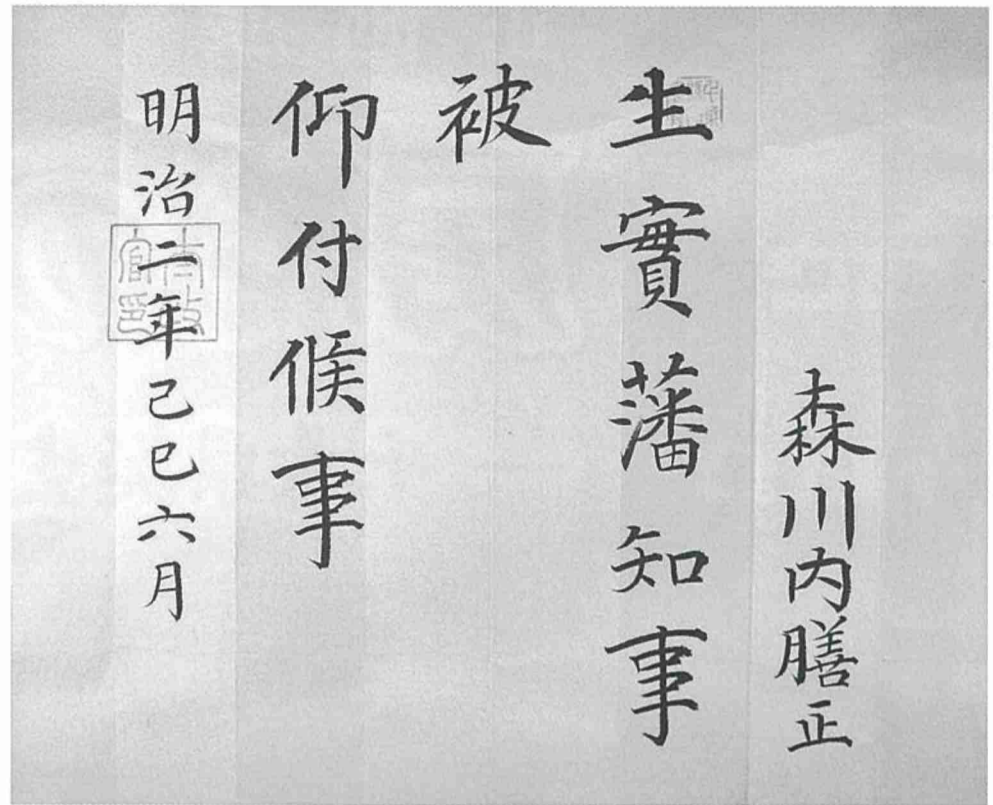 森川内膳正
生實藩知事
被
仰付候事
明治二年己巳六月